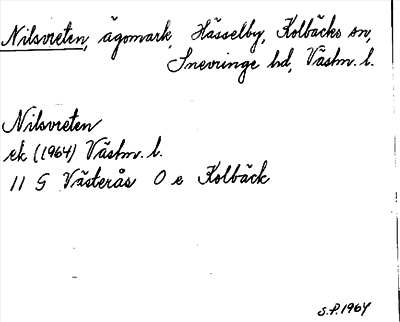 Nilsvreten, ägomark, Hässelby, Kolbäcks sn,
Snevringe hd, Västm. l.
Nilsvreten
ek (1964) Västm. l.
11 G Västerås O e Kolbäck
S.P. 1964